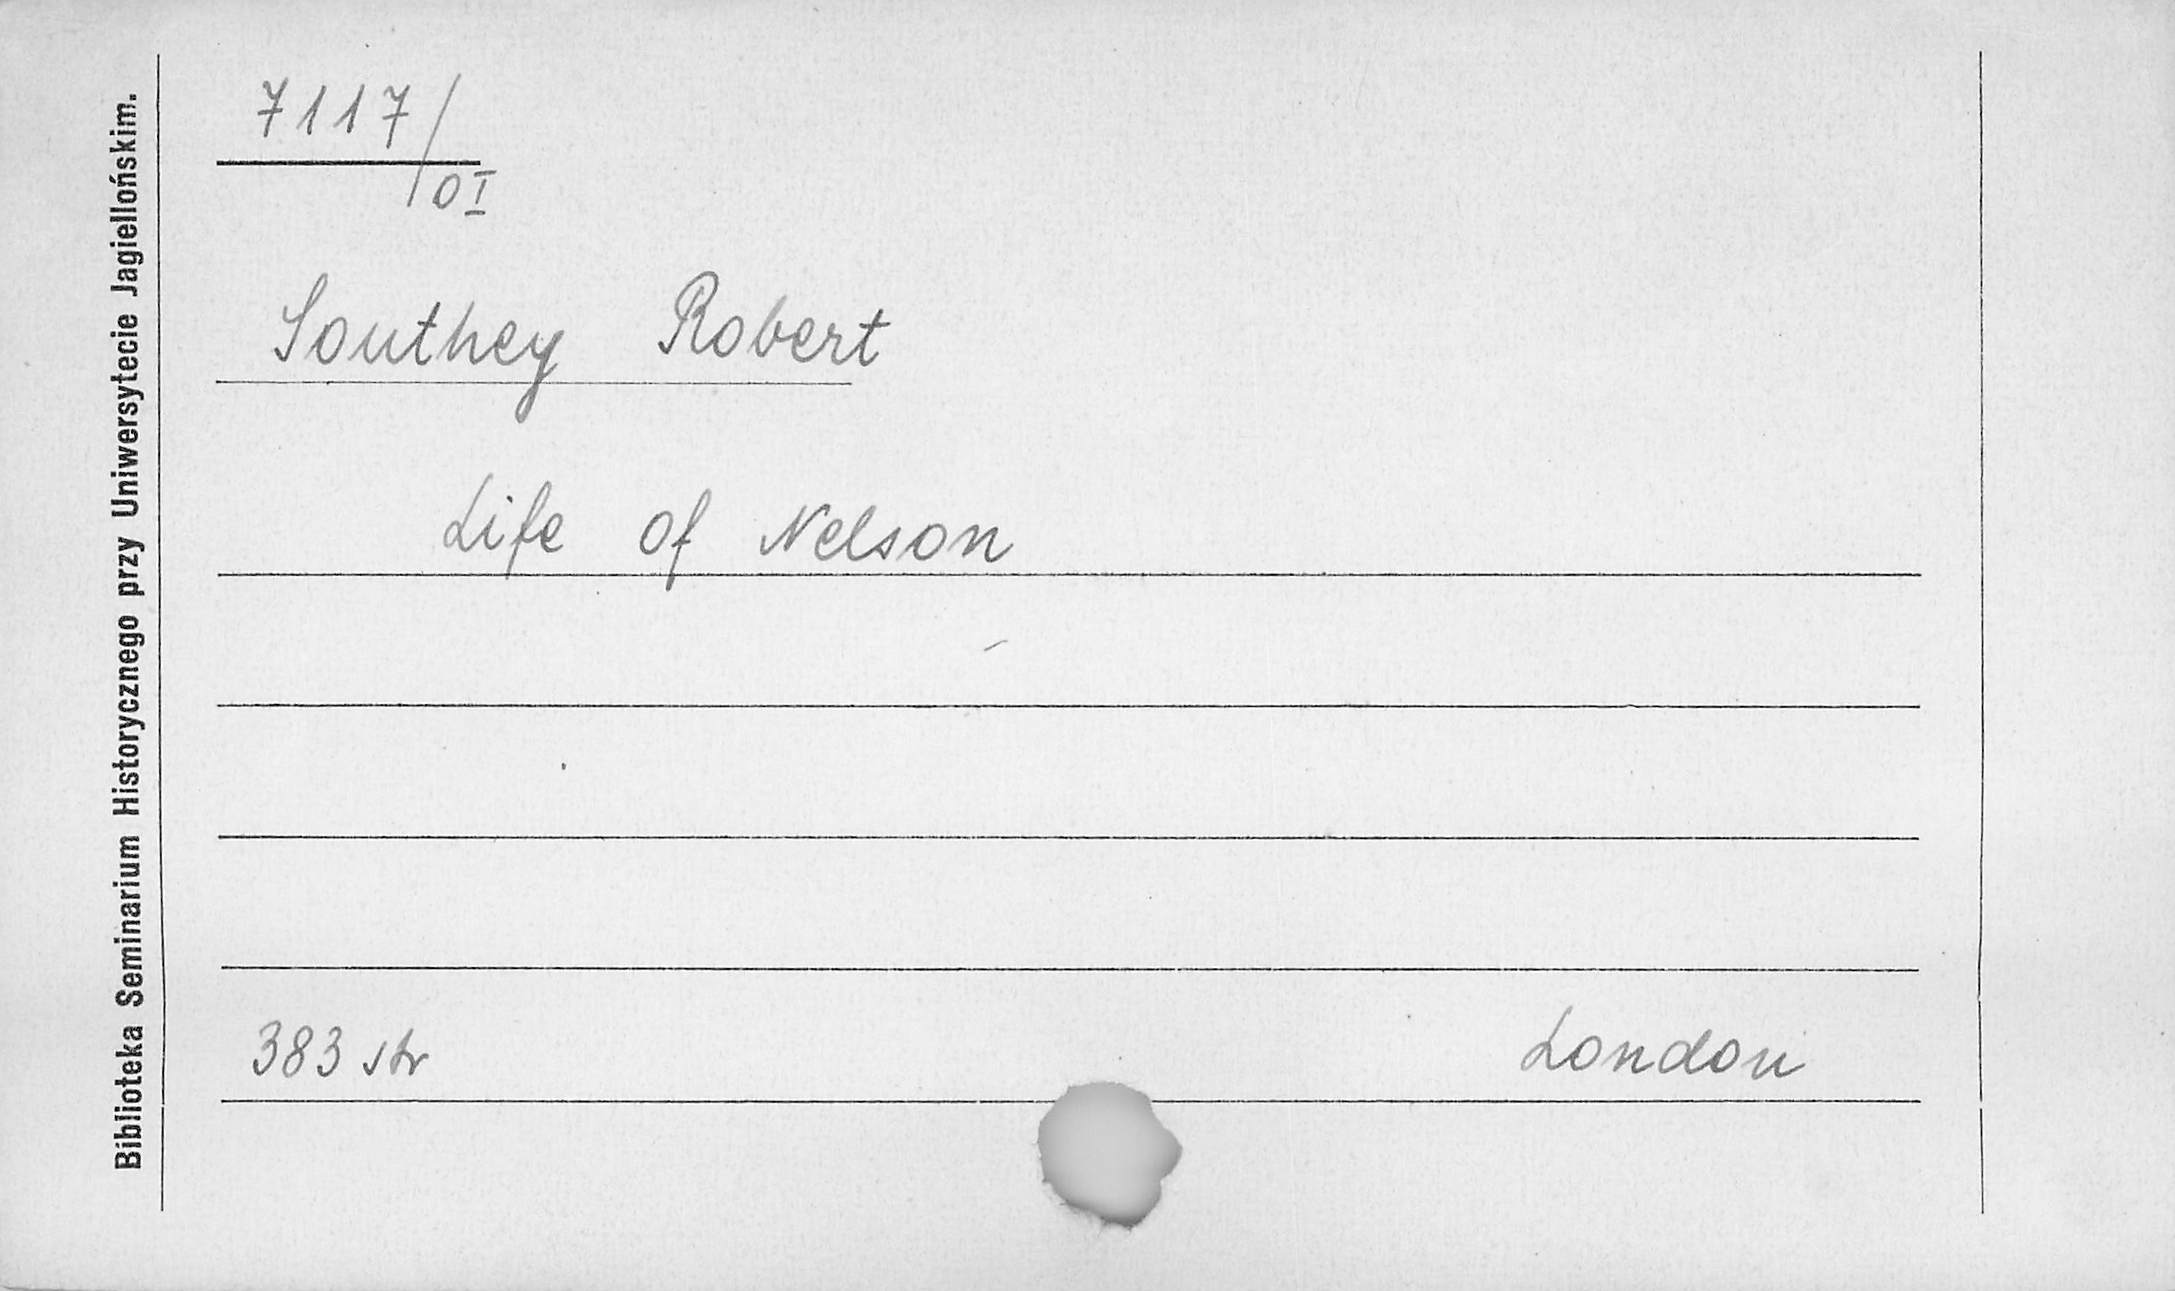 7117/
OI
Southey Robert
Life of Nelson
383 str
London
Biblioteka Seminarium Historycznego przy Uniwersytecie Jagiellońskim.